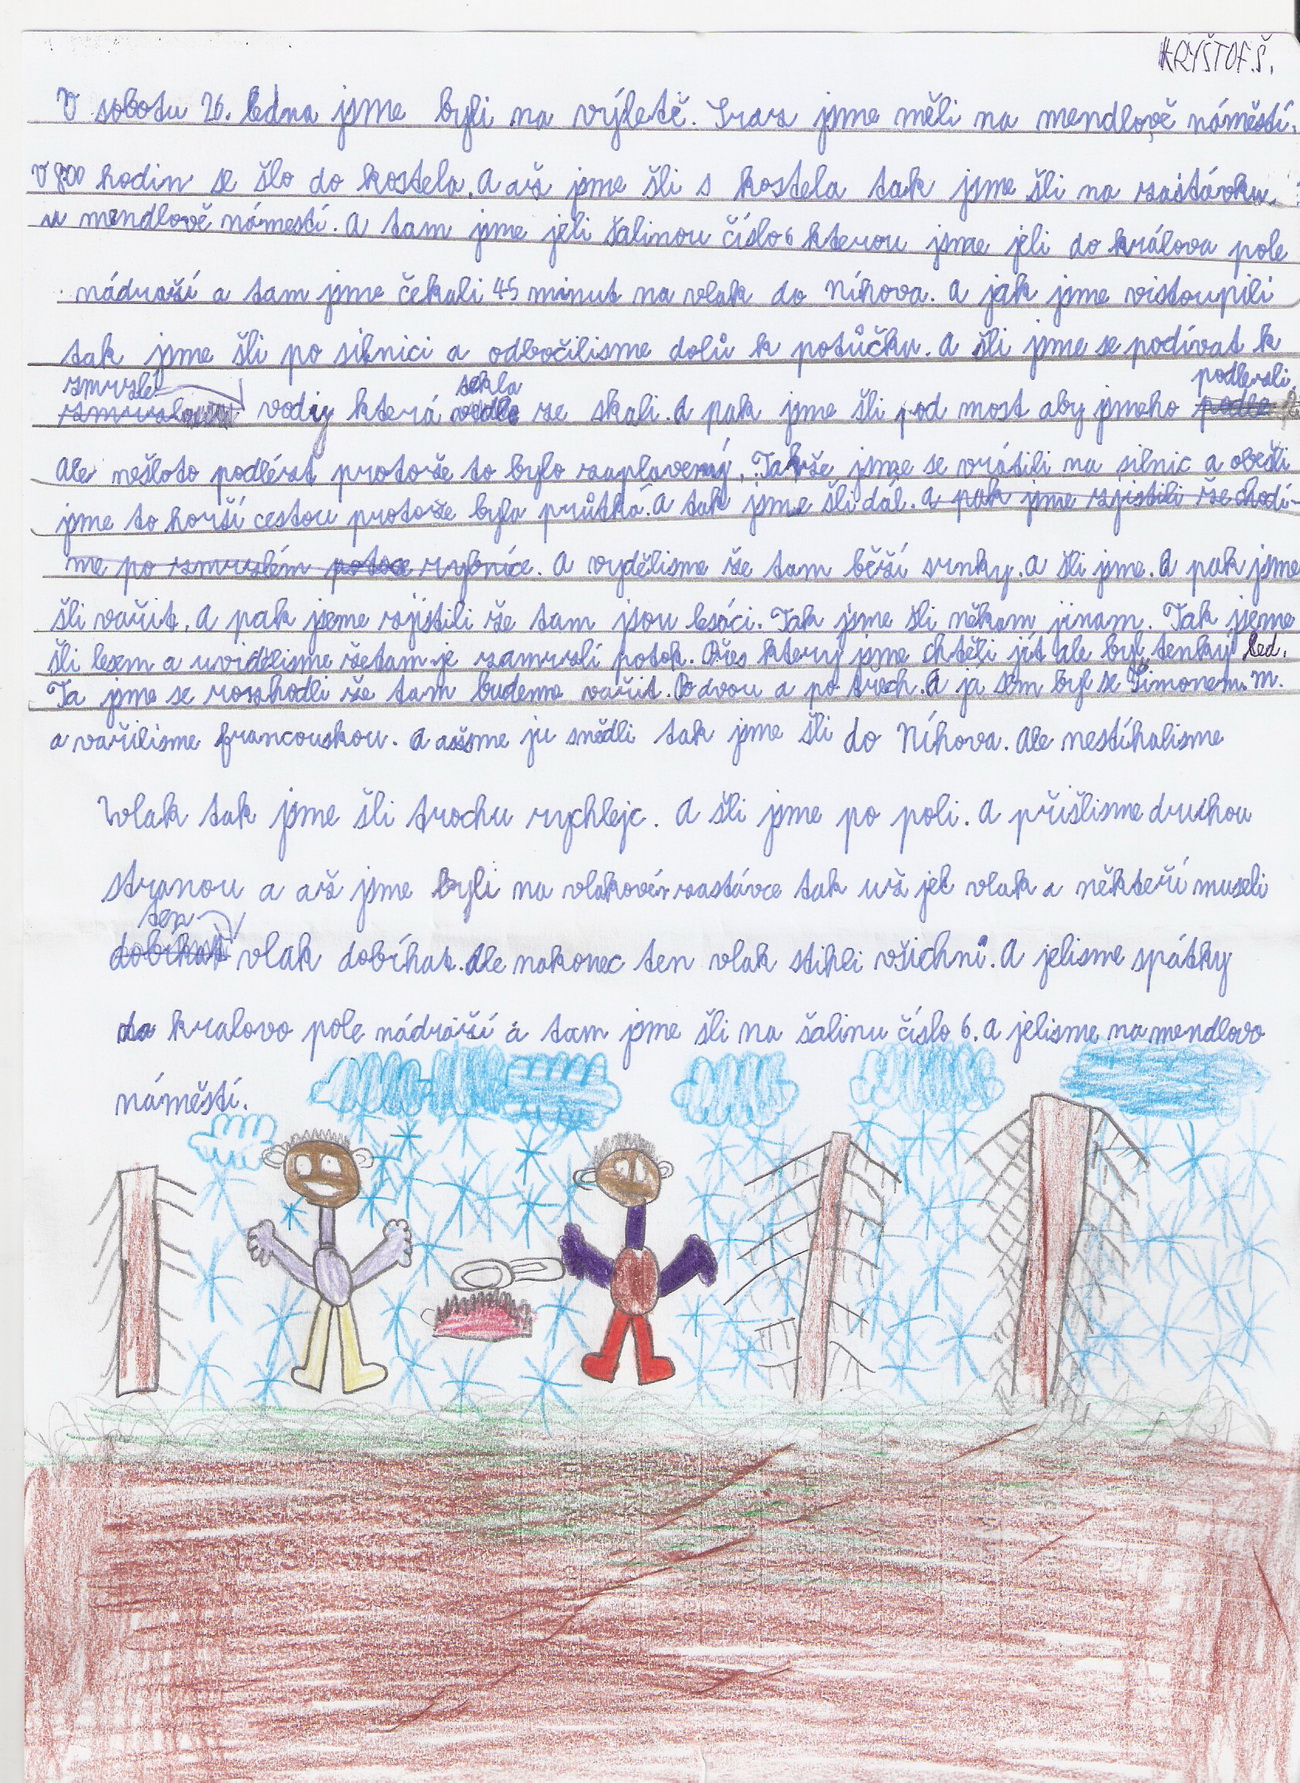 KRYŠTOF.Š.
V sobotu 26. ledna jsme byli na výletě. Sraz jsme měli na mendlově náměstí.
V 8:00 hodin se šlo do kostela. A až jsme šli s kostela tak jsme šli na zastávku
u mendlově náměstí. A tam jsme jeli šalinou číslo 6 kterou jsme jeli do králova pole
nádraží a tam jsme čekali 45 minut na vlak do Níhova. A jak jsme vistoupili
tak jsme šli po silnici a odbočilisme dolů k potůčku. A šli jsme se podívat k
zmrzlé sekla podlezli
vody která ze skali. A pak jsme šli pod most aby jsmeho
Ale nešloto podlézt protože to bylo zaplavený. Takže jsme se vrátili na silnic a obešli
jsme to horší cestou protože byla průtká. A tak jsme šli dál. a pak jsme zjistili že chodí-
me po zmrzlém potoce rybníce. A vydělisme že tam běží srnky. A šli jsme. A pak jsme
šli vařit. A pak jseme zjistili že tam jsou lesáci. Tak jsme šli někam jinam. Tak jseme
šli lesem a uvidělisme žetam je zamrzlí potok. Přes který jsme chtěli jít ale byl tenký led.
Ta jsme se rozhodli že tam budeme vařit. Po dvou a po třech. A já sem byl se Šimonem. m.
a vařilisme francouskou. A ažsme ju snědli tak jsme šli do Níhova. Ale nestíhalisme
vlak tak jsme šli trochu rychlejc. A šli jsme po poli. A přišlisme druhou
stranou a až jsme byli na vlakovér zastávce tak už jel vlak a někteří museli
ten
dobíhat vlak dobíhat. Ale nakonec ten vlak stihli všichni. A jelisme spátky
do kralovo pole nádraží a tam jsme šli na šalinu číslo 6. a jelisme na mendlovo
náměstí.